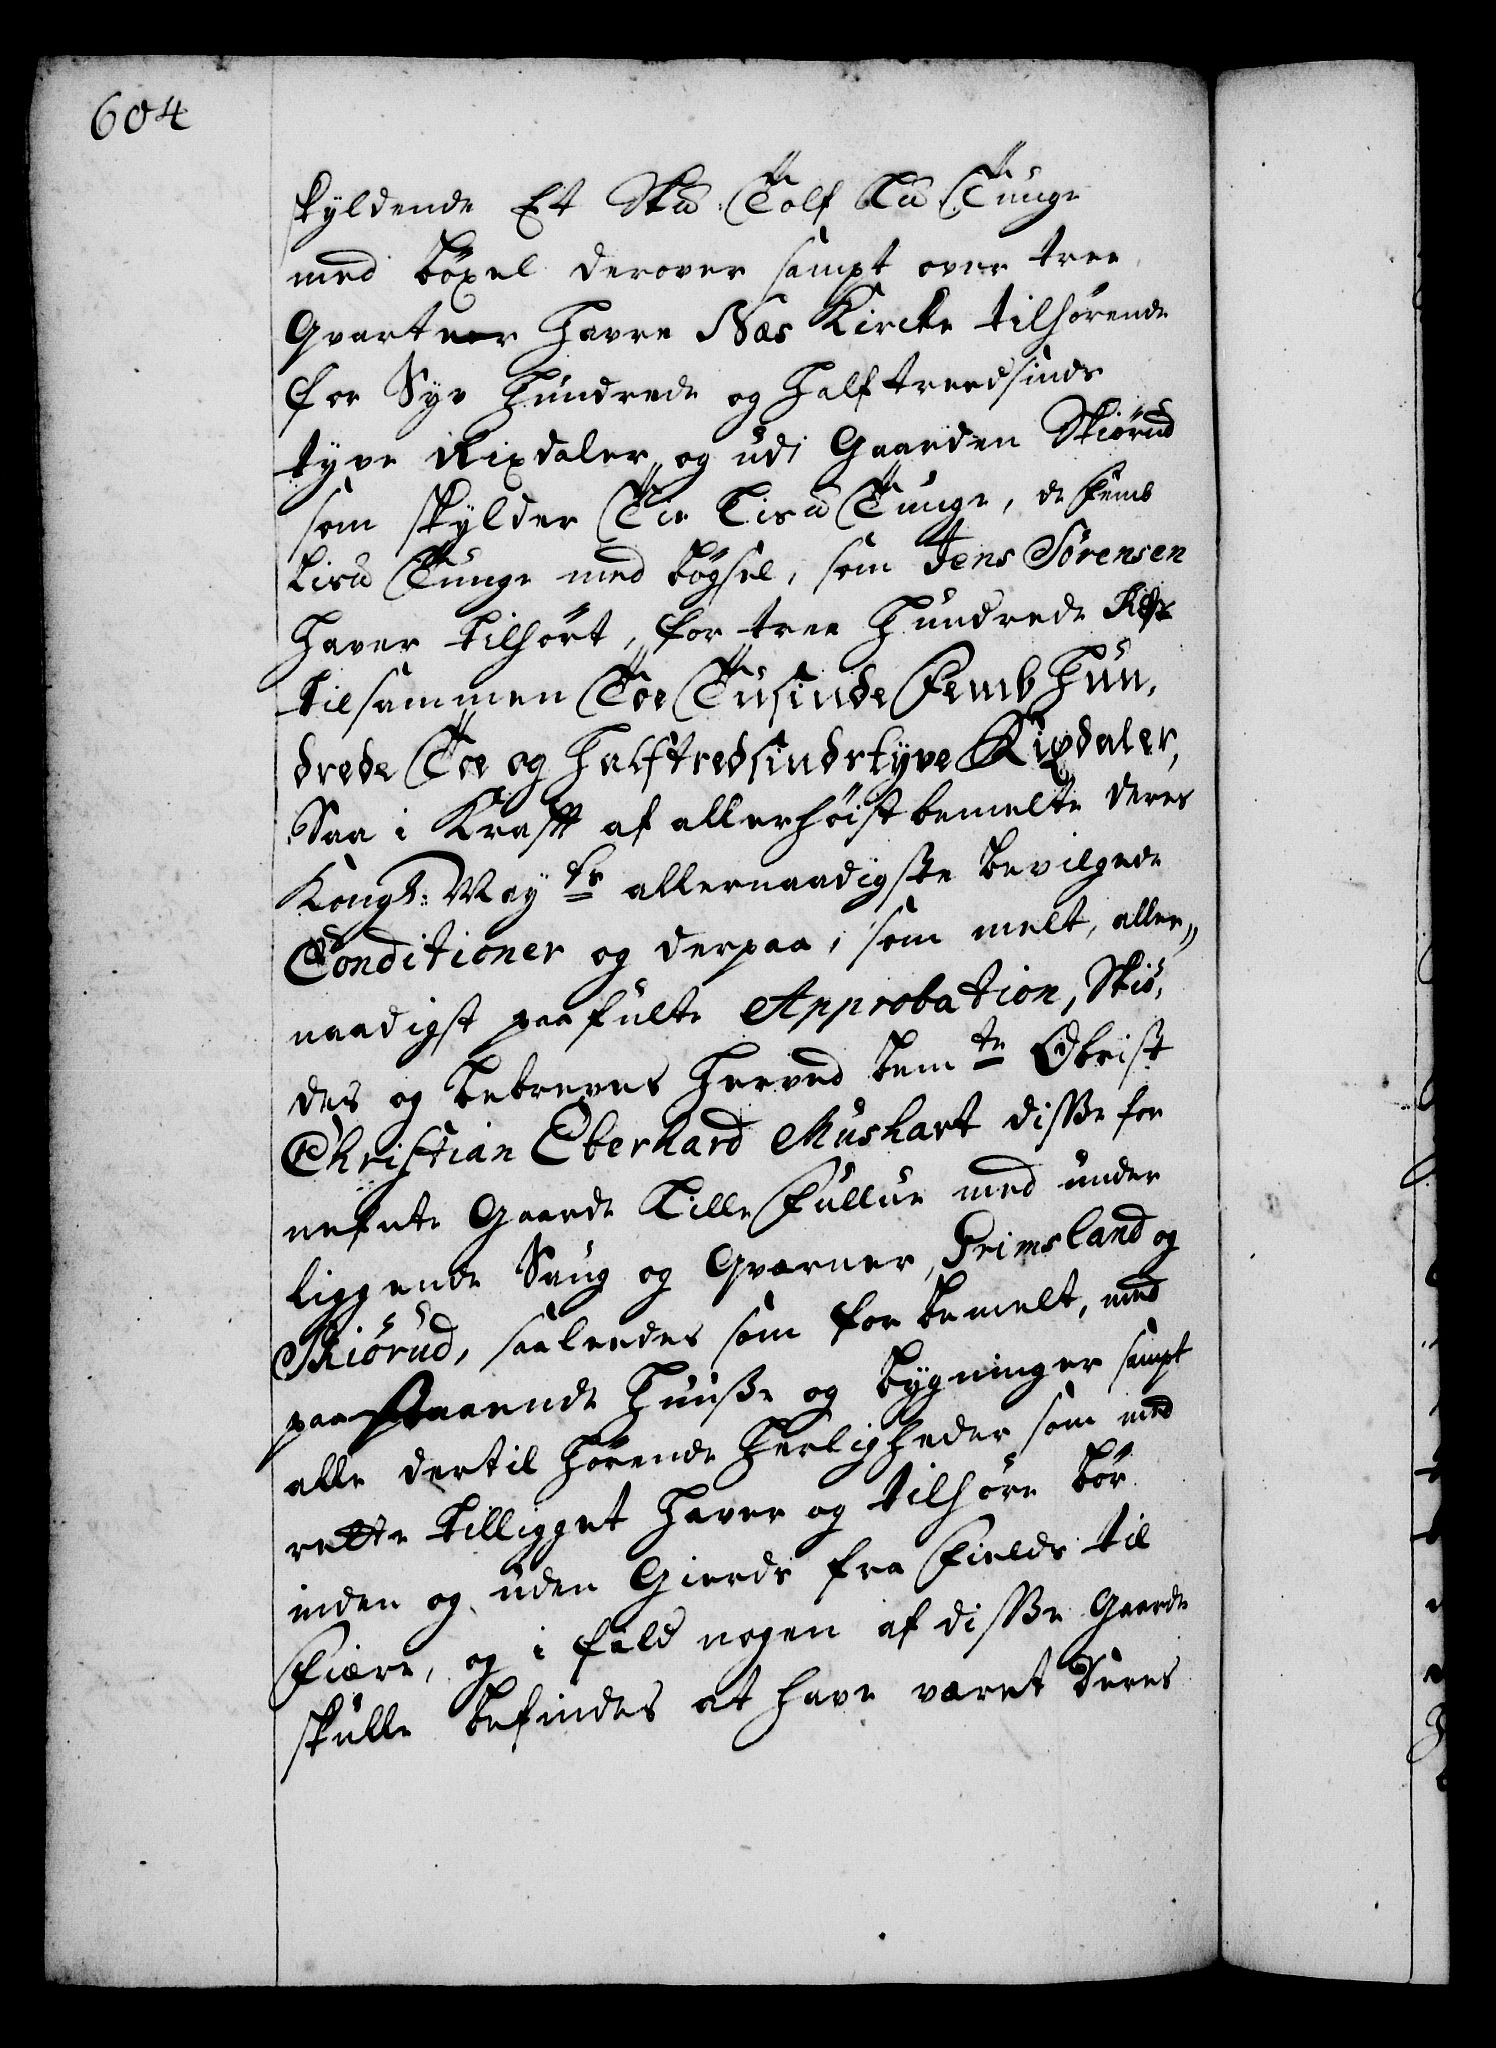 604
skyldende Et Sku Tolf Lu Tunge
med böxel derover sampt over tree
Qvarteer Havre Næs Kircke tilhörende
for Syv Hundrede og Halftreedsinds
tyve Rixdaler, og udi Gaarden Skiörud
som skylder Tie Lisu Tunge, de femb
Lisu Tunge med bögsel, som Jens Sörensen
Haver tilhört, for tree Hundrede Rdr
tilsammen Toe Tusinde Femb Hun,
drede Toe og Halftredsindstyve Rixdaler,
Saa i Krafft af allerhöistbemelte deres
Kongl: May ts allernaadigste bevilgede
Conditioner og derpaa, som melt, aller„
naadigst paafulte Approbation, Skiö,
des og bebreves Herved bem te Obrist
Christian Eberhard Mushart disse for
nefnte Gaarde Lille Fullue med under
liggende Saug og Qværner, Grimsland og
Skiörud, saaleedes som for bemelt, med
paastaaende Huuse og bygninger sampt
alle dertil Hörende Herligheder som med
rette tilligget Haver og tilhöre bör
inden og uden Gierds fra Fields til
Fiære, og i fald nogen af disse Gaarde
skulle befindes at have været deres